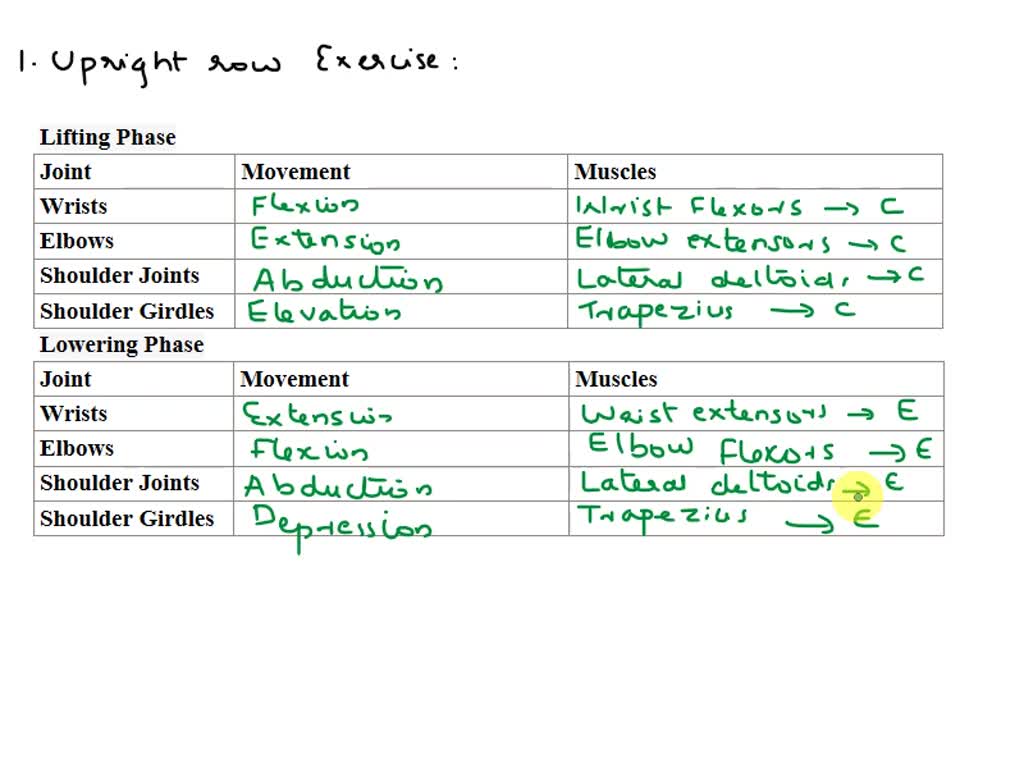 1. Upright row Exercise:
Lifting Phase
Joint Movement Muscles
Wrists Flexion Wrist Flexors → C
Elbows Extension Elbow extensors → C
Shoulder Joints Abduction Lateral deltoids → C
Shoulder Girdles Elevation Trapezius → C
Lowering Phase
Joint Movement Muscles
Wrists Extension Waist extensors → E
Elbows Flexion Elbow Flexors → E
Shoulder Joints Abduction Lateral deltoids → E
Shoulder Girdles Depression Trapezius → E